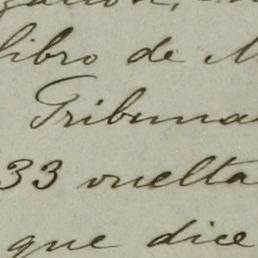 libro de
Tribuna
33 vuelta
que dice